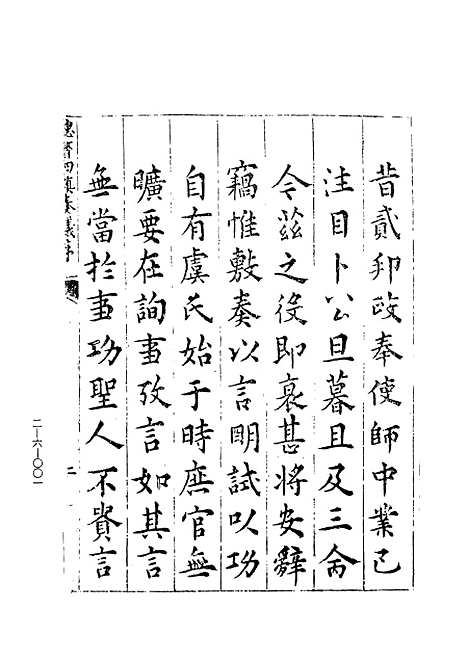 昔貳卯政奉使師中業已
注目卜公旦暮且及三俞
令茲之役即衰甚將安辭
竊惟敷奏以言明試以功
自有虞氏始于時庶官無
曠要在詢事攷言如其言
無當於事功聖人不貴言
總督四鎮奏議序
二
二-六-〇〇一